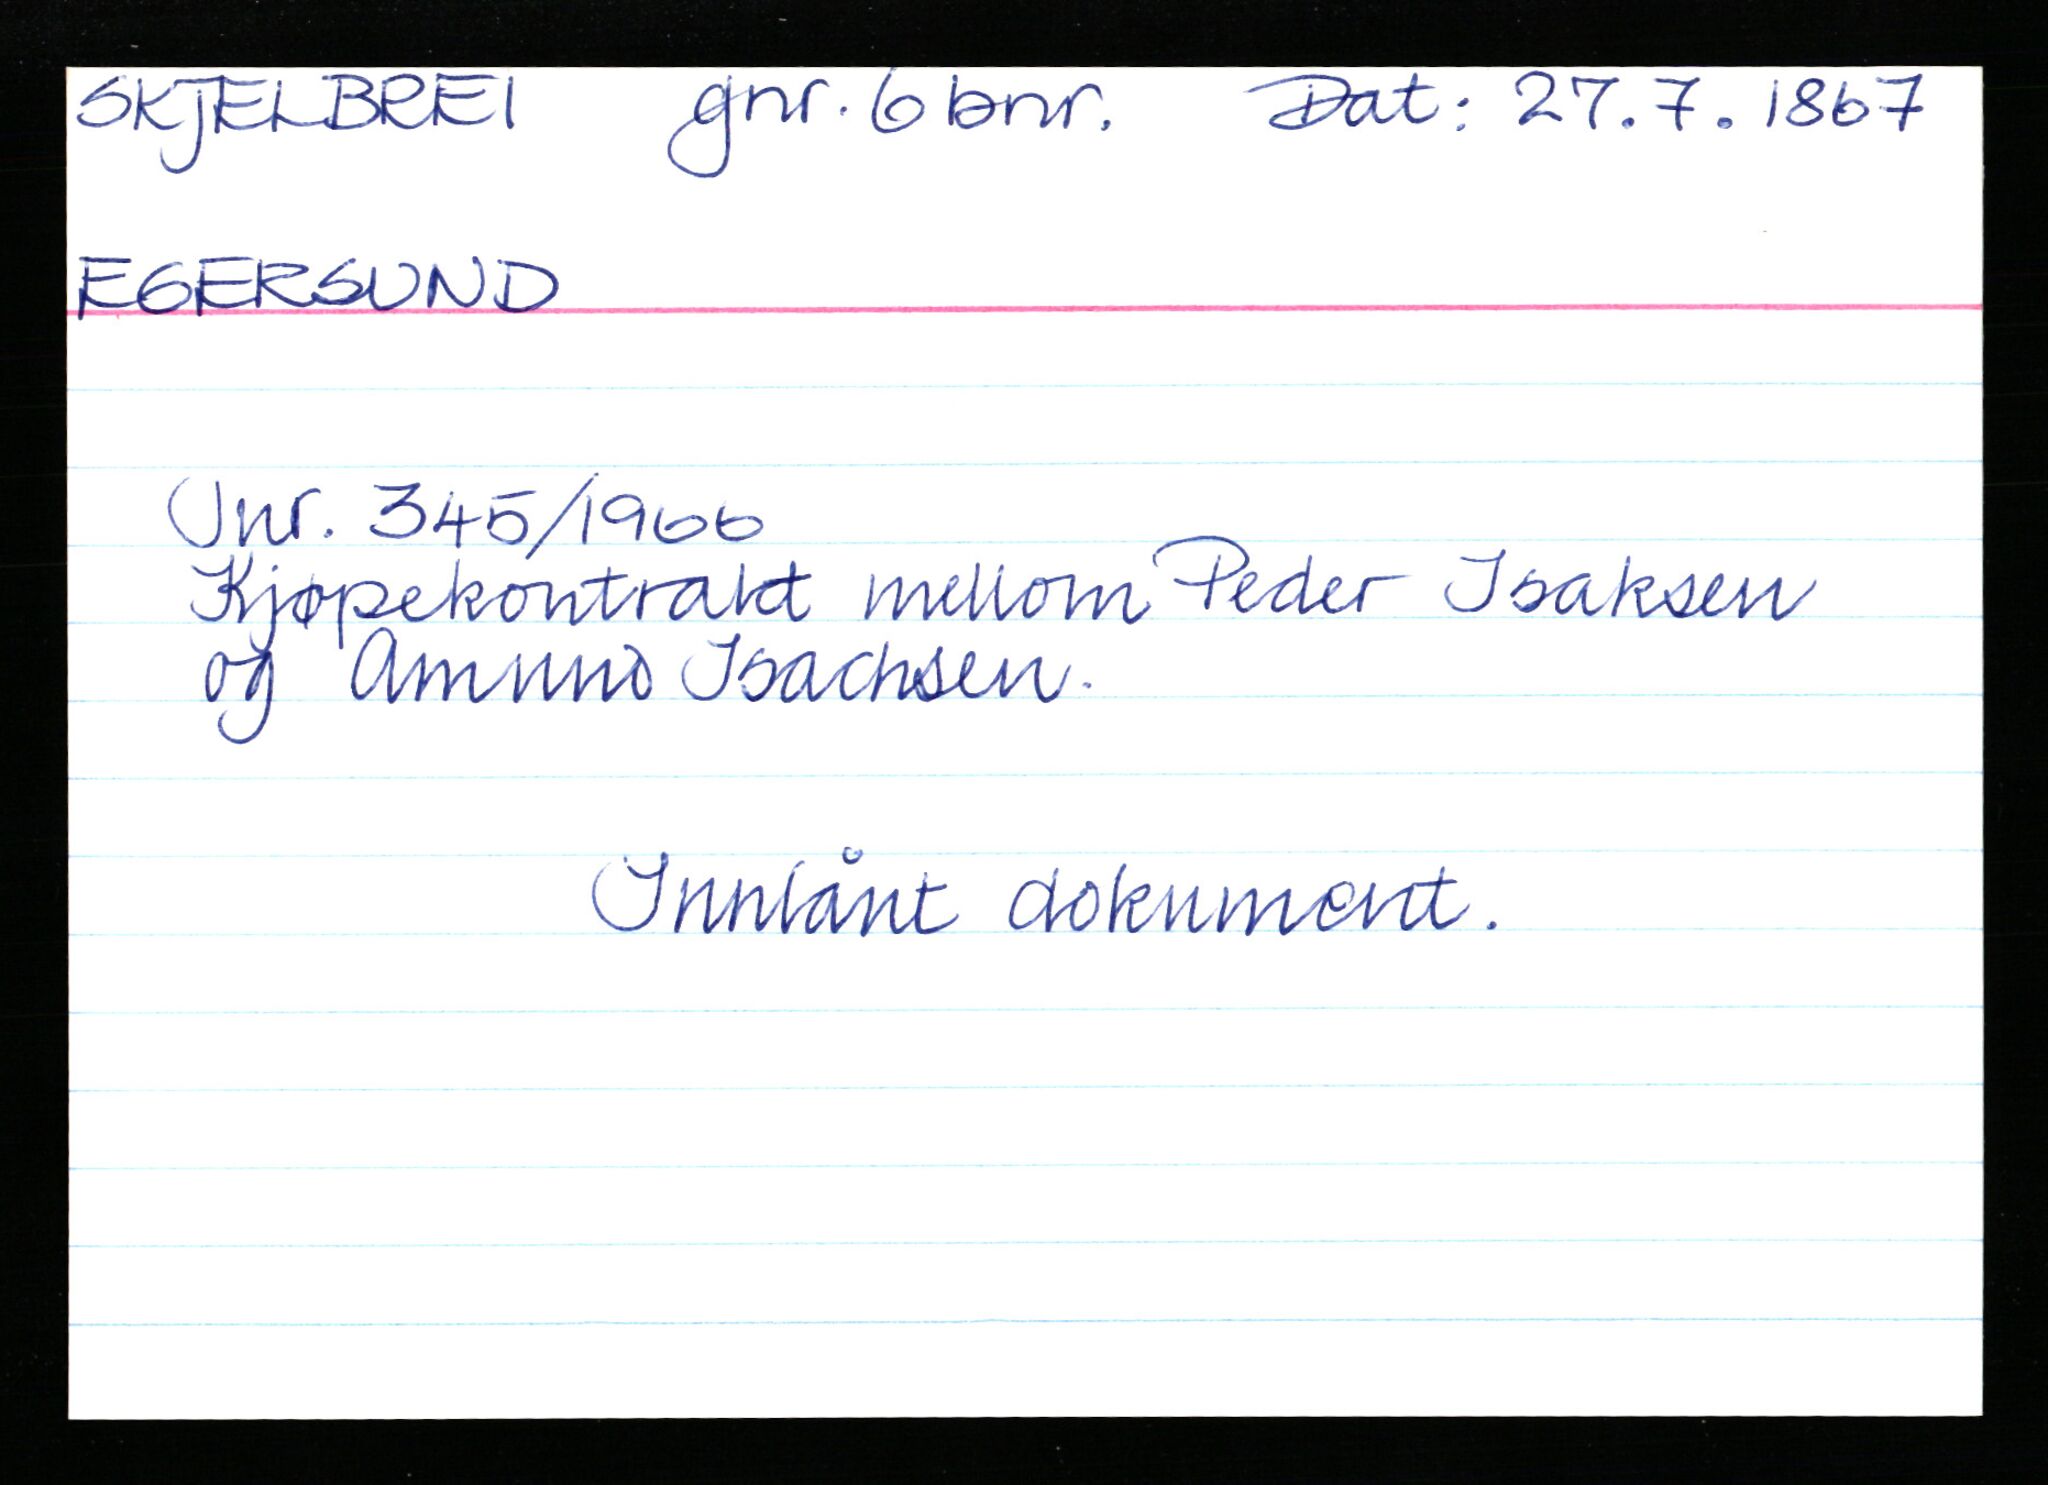 SKJELBREI gnr. 6 bnr. Dat: 27.7.1867
EGERSUND
Jnr. 345/1966
Kjøpekontrakt mellom Peder Isaksen
og Amund Isachsen.
Innlånt dokument.